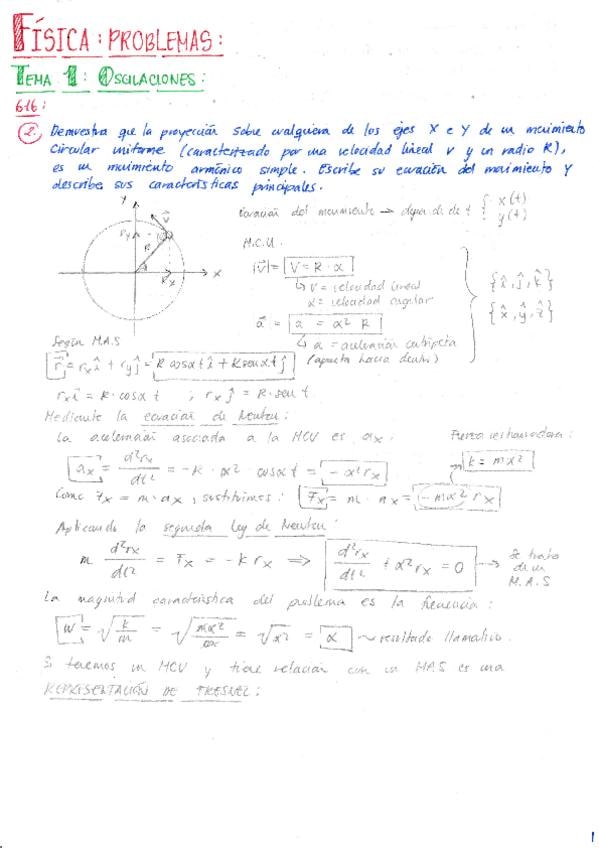 FÍSICA: PROBLEMAS:
TEMA 1: OSCILACIONES:
616:
2. Demuestra que la proyección sobre cualquiera de los ejes X e Y de un movimiento
circular uniforme (caracterizado por una velocidad lineal v y un radio R),
es un movimiento armónico simple. Escribe su ecuación del movimiento y
describe sus características principales.
Y
ecuación del movimiento → depende de t { x(t)
y(t)
v⃗
r_y
R
α
r_x
X
M.C.U.
|v⃗| = V = R · α
↳ V = velocidad lineal
α = velocidad angular
{î, ĵ, k̂}
{x̂, ŷ, ẑ}
a⃗ = a = α² R
↳ a = aceleración centrípeta
(apunta hacia dentro)
Según M.A.S
r⃗ = r_x î + r_y ĵ = R cosαt î + R senαt ĵ
r_x î = R · cosαt ; r_x ĵ = R · sen t
Mediante la ecuación de Newton:
La aceleración asociada a la MCU es a_x:
Fuerza restauradora:
a_x = d²r_x/dt² = -R · α² · cosαt = -α² r_x
k = mα²
Como F_x = m · a_x, sustituimos: F_x = m · a_x = -mα² r_x
Aplicando la segunda Ley de Newton:
m d²r_x/dt² = F_x = -k r_x ⟹ d²r_x/dt² + α² r_x = 0 → Se trata
de un
M.A.S
La magnitud característica del problema es la frecuencia:
w = √(k/m) = √(mα²/m) = √α² = α ~ resultado llamativo.
Si tenemos un MCU y tiene relación con un MAS es una
REPRESENTACIÓN DE FRESNEL:
1